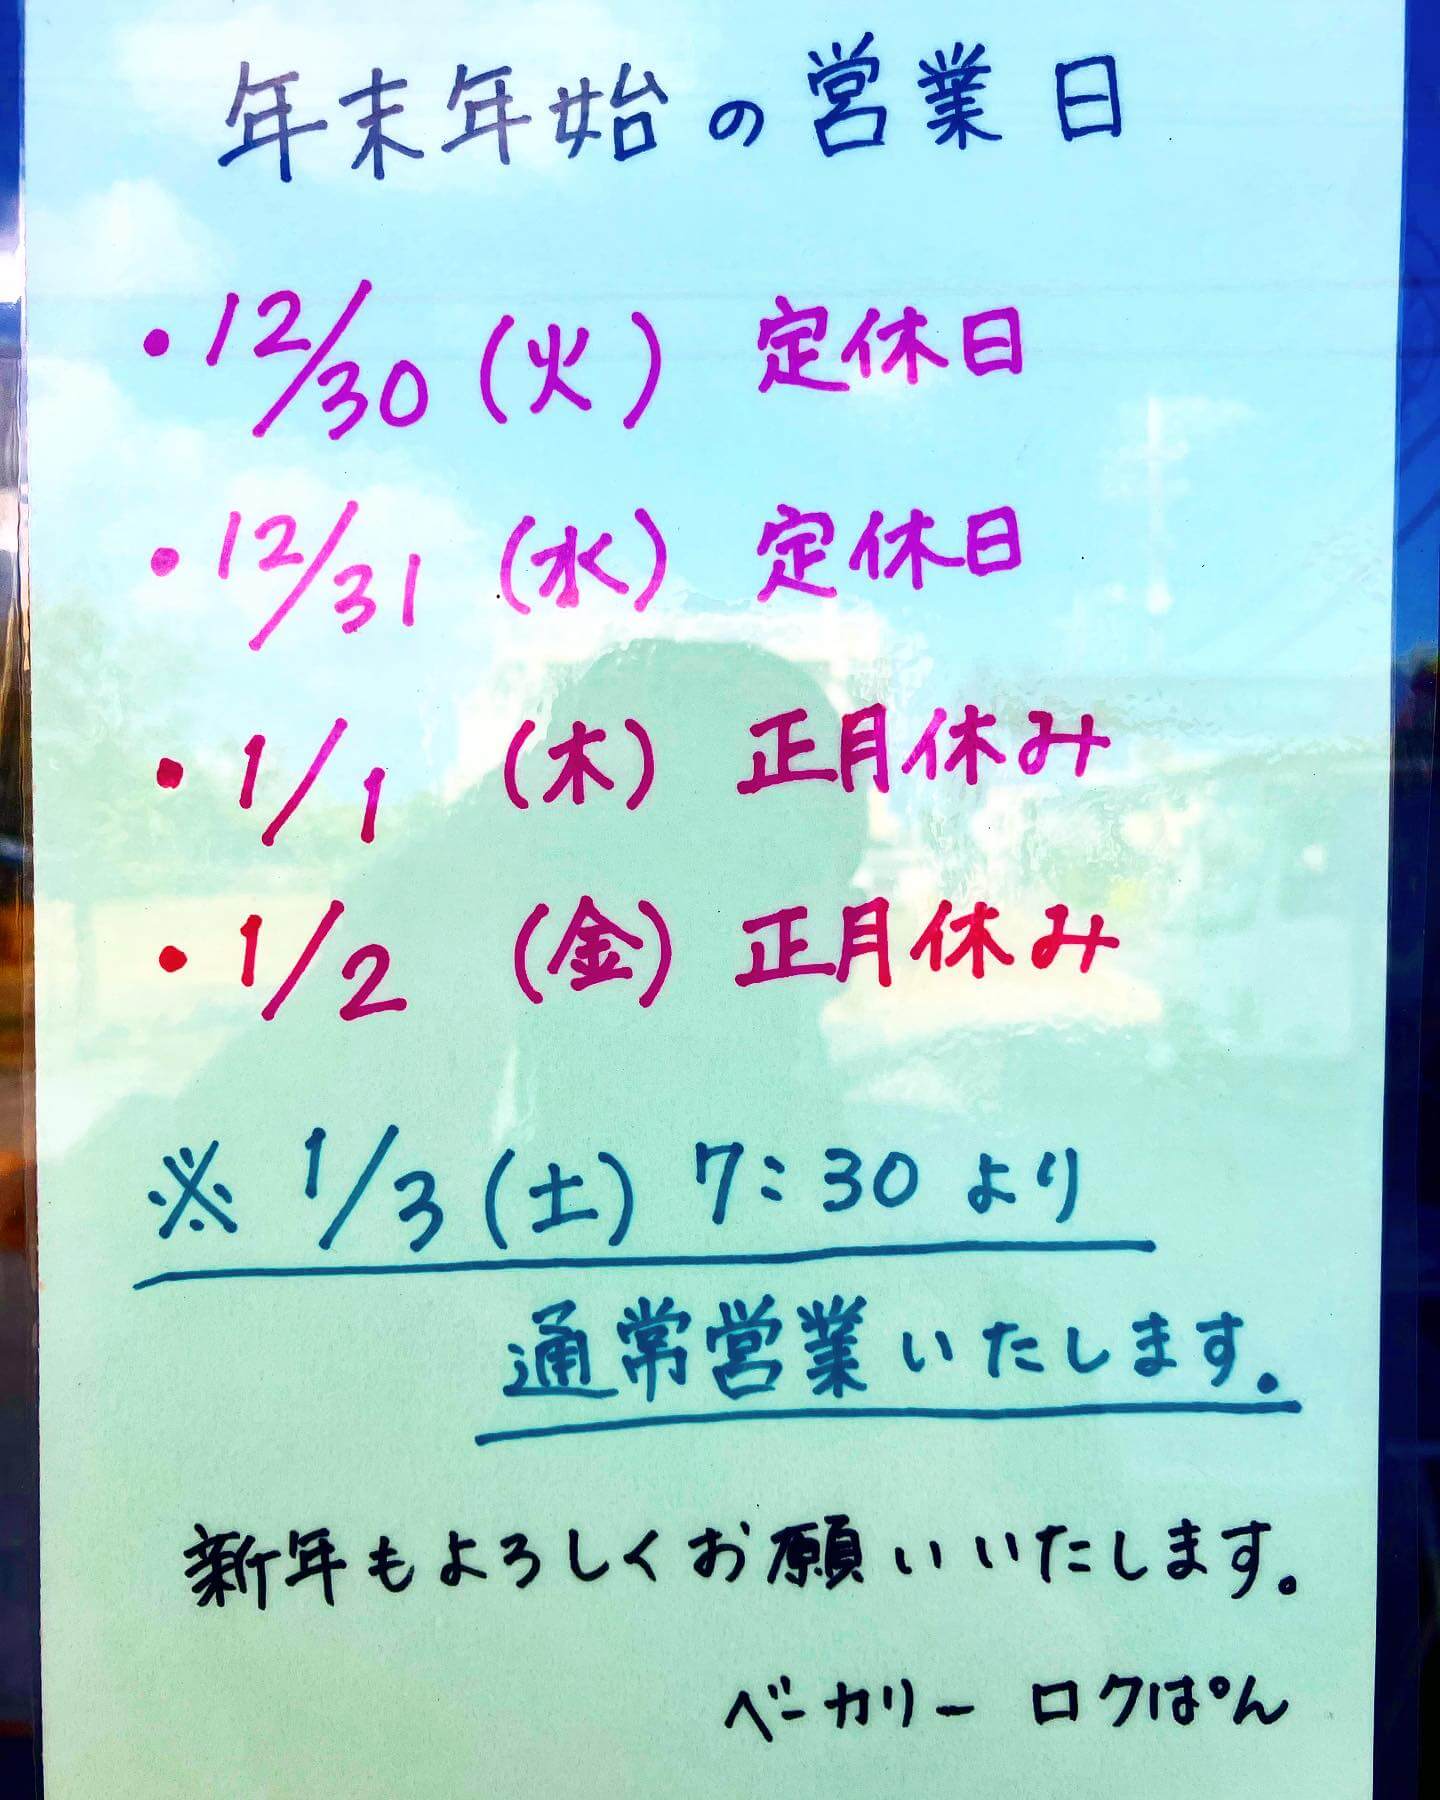 年末年始の営業日
・12/30（火） 定休日
・12/31（水） 定休日
・1/1（木） 正月休み
・1/2（金） 正月休み
※ 1/3（土） 7:30より
通常営業いたします。
新年もよろしくお願いいたします。
ベーカリー ロクぱん